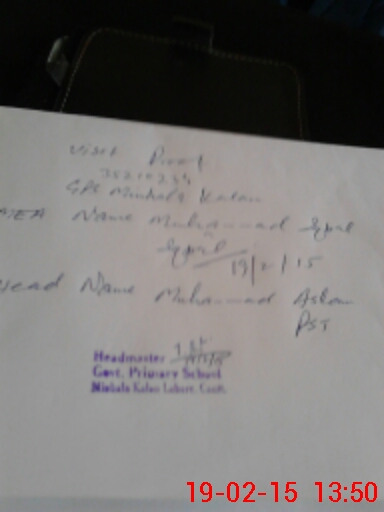 Visit Proof
35210234
GPS Minhala Kalan
MEA Name Muhammad Iqbal
19/2/15
Head Name Muhammad Aslam
PST
Headmaster
Govt. Primary School
Minhala Kalan Lahore Cantt.
19-02-15 13:50